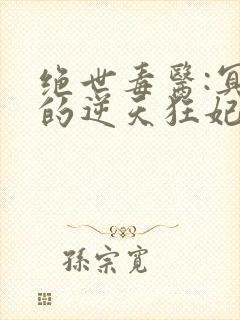 绝世毒醫:冥
的逆天狂妃
孫宗寬